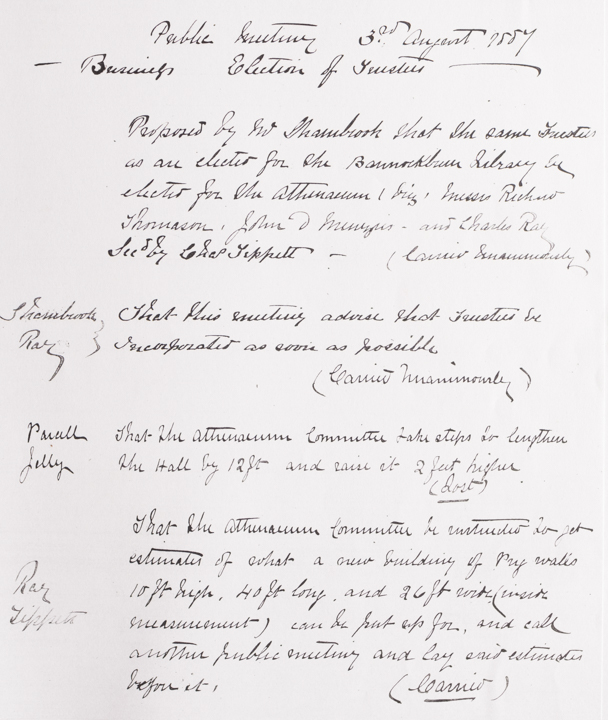 Public Meeting 3rd August 1887
— Business Election of Trustees —
Proposed by Mr Shambrook that the same Trustees
as are elected for the Bannockburn Library be
elected for the Athenaeum (viz, Messrs Richard
Thomason, John D Menzies - and Charles Ray
Secd by Chas Tippett — (Carried Unanimously)
Shambrook
Ray
That this meeting advise that Trustees be
Incorporated as soon as possible
(Carried Unanimously)
Parcell
Jelly
That the Athenaeum Committee take steps to lengthen
the Hall by 12ft and raise it 2 feet higher
(Lost)
Ray
Tippett
That the Athenaeum Committee be instructed to get
estimates of what a new building of Pug walls
10 ft high, 40 ft long, and 26 ft wide (inside
measurement) can be put up for, and call
another public meeting and lay said estimates
before it, (Carried)